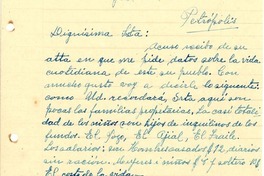 Petrópolis
Dignísima Sta:
Acuso recibo de su
atta en que me pide datos sobre la vida
cuotidiana de este su pueblo. Con
mucho gusto voy a decirle lo siguiente:
como Ud. recordará, Srta aquí son
pocas las familias propietarias. La casi totali-
dad de los niños son hijos de inquilinos de los
fundos. El Tojo, El Ajial, El Fraile.
Los salarios: son Hombres casados $12 diarios
sin ración. Mujeres i niños $ solteros $8
El costo de la vida